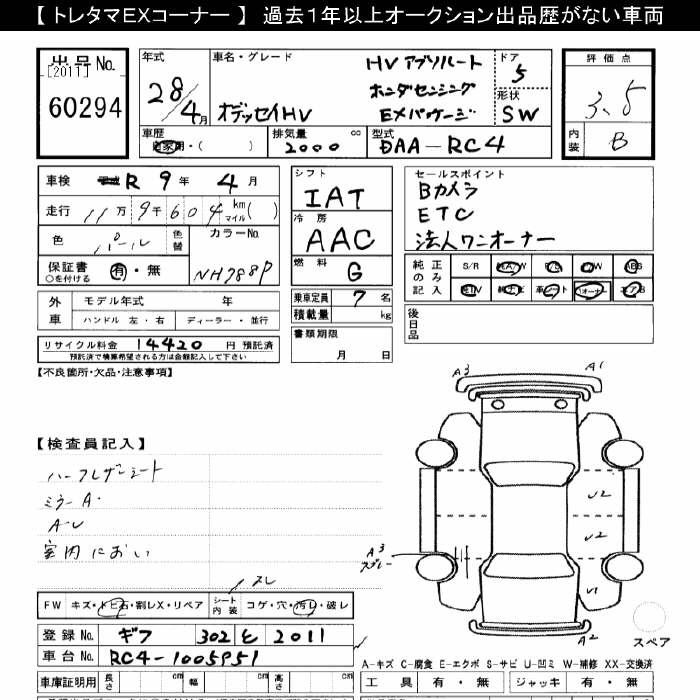 【 トレタマEXコーナー 】 過去1年以上オークション出品歴がない車両
出品No.
[2011]
60294
年式
28/4月
車名・グレード
HV アブソルート
ホンダセンシング
オデッセイHV EXパッケージ
ドア
5
形状
SW
評価点
3.5
内装
B
車歴
自家用・( )
排気量 cc
2000
型式
DAA-RC4
車検 平成 R 9年 4月
走行 11万 9千 604 km マイル( )
色 パール 色替
カラーNo.
NH788P
保証書 有・無
○を付ける
外車
モデル年式 年
ハンドル 左・右 ディーラー・並行
リサイクル料金 14420 円 預託済
預託済で検算希望される方は金額記入して下さい
シフト
IAT
冷房
AAC
燃料
G
乗車定員 7 名
積載量 kg
書類期限
月 日
セールスポイント
Bカメラ
ETC
法人ワンオーナー
純正のみ記入
S/R A/W P/S P/W ABS
TV ナビ 革シート 1オーナー エアB
後日品
【不良箇所・欠品・注意事項】
【検査員記入】
ハーフレザーシート
ミラーA・
A・U
室内におい
A3
A1
U2
U2
A3
スプレー
U1
A2
スペア
スレ
FW キズ・トビ石・割レX・リペア シート内装 コゲ・穴・汚レ・破レ
登録No. ギフ 302 と 2011
車台No. RC4-1005951
車庫証明用 長さ cm 幅 cm 高さ cm
A-キズ C-腐食 E-エクボ S-サビ U-凹ミ W-補修 XX-交換済
工具 有・無 ジャッキ 有・無